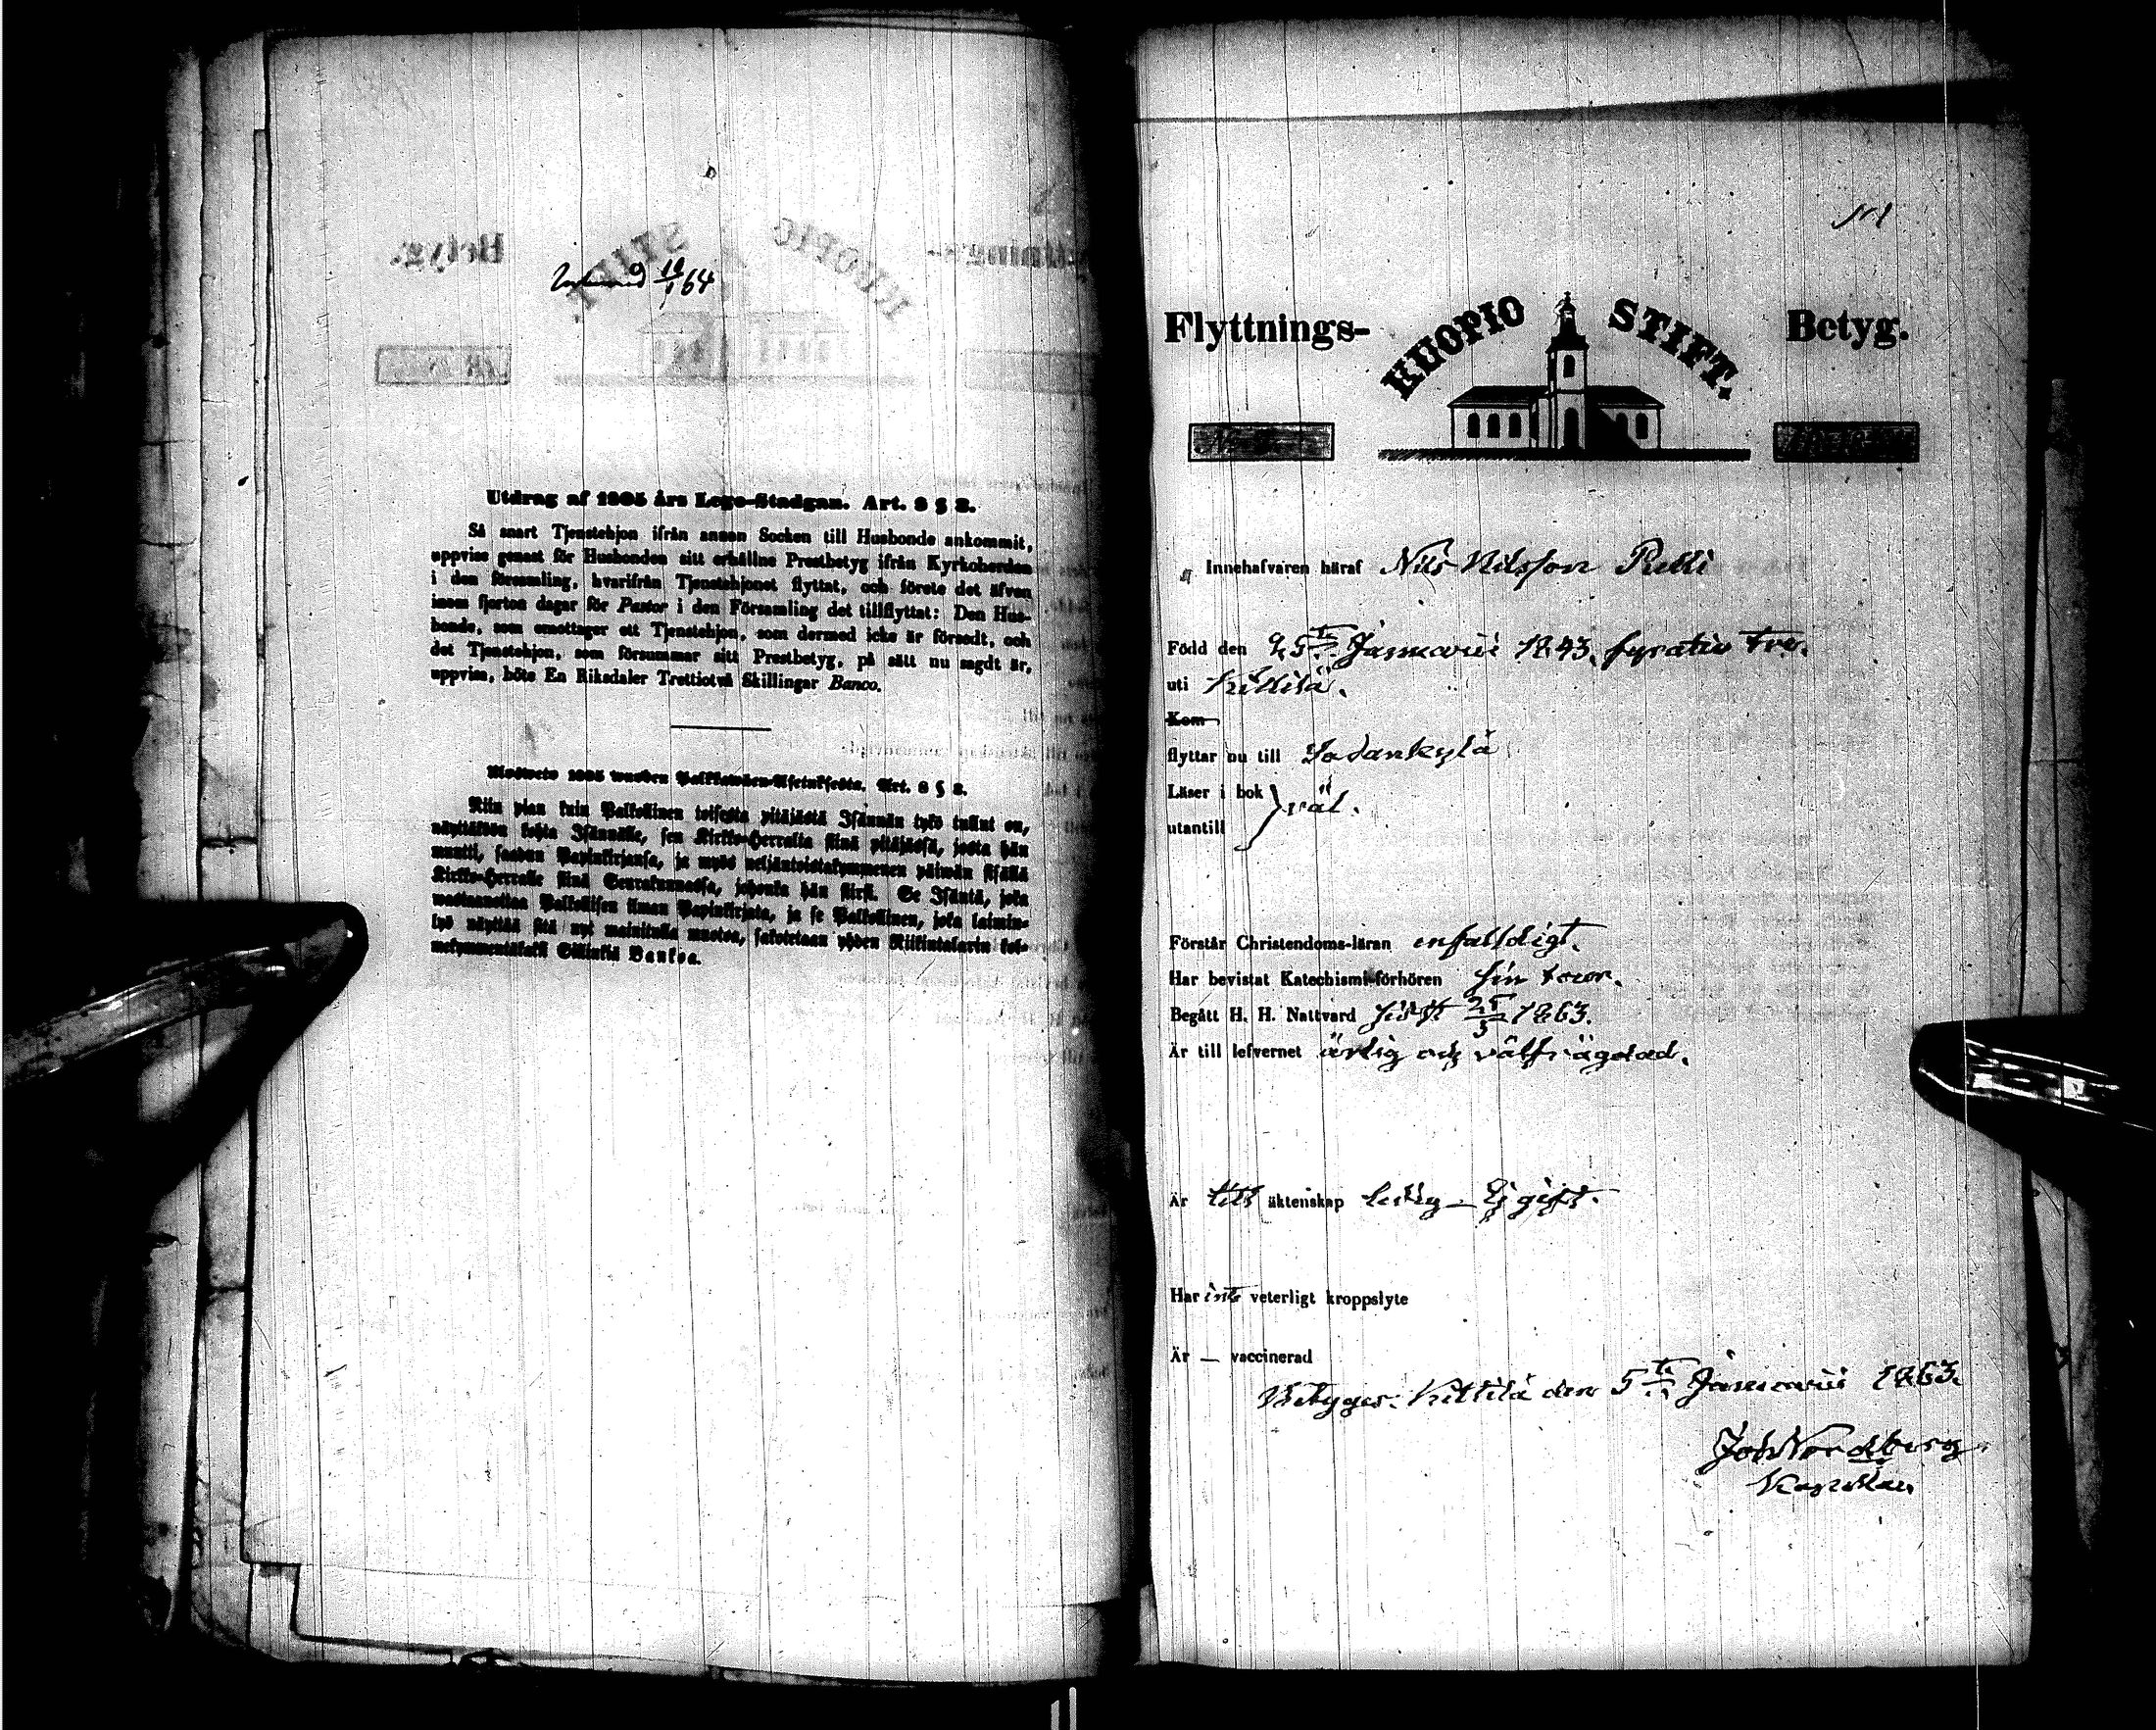 10/1 64
Utdrag af 1805 års Lego-Stadgan. Art. 8 § 2.
Så snart Tjenstehjon ifrån annan Socken till Husbonde ankommit,
uppvise genast för Husbonden sitt erhållne Prestbetyg ifrån Kyrkoherden
i den församling, hvarifrån Tjenstehjonet flyttat, och förete det äfven
inom fjorton dagar för Pastor i den Församling det tillflyttat: Den Hus-
bonde, som emottager ett Tjenstehjon, som dermed icke är försedt, och
det Tjenstehjon, som försummar sitt Prestbetyg, på sätt nu sagdt är,
uppvisa, böte En Riksdaler Trettiotvå Skillingar Banco.
Ulosweto 1805 wuoden Palkkawäen-Asetuksesta. Art. 8 § 2.
Niin pian kuin Palkollinen toisesta pitäjästä Isännän tykö tullut on,
näyttäkön kohta Isännälle, sen Kirkko-Herralta siinä pitäjässä, josta hän
muutti, saadun Papinkirjansa, ja myös neljäntoistakymmenen päiwän sisällä
Kirkko-Herralle siinä Seurakunnassa, johonka hän siirsi. Se Isäntä, joka
wastaanottaa Palkollisen ilman Papinkirjata, ja se Palkollinen, joka laimin-
lyö näyttää sitä nyt mainitulla muotoa, sakotetaan yhden Riikintalarin kol-
mekymmentäkaksi Killinkiä Bankoa.
N 1
Flyttnings- KUOPIO STIFT. Betyg.
Innehafvaren häraf Nils Nilsson Pelli
Född den 25te Januarii 1843. fyratio tre.
uti Kittilä.
Kom
flyttar nu till Sodankylä
Läser i bok } väl.
utantill
Förstår Christendoms-läran enfaldigt.
Har bevistat Katechismi-förhören
Begått H. H. Nattvard sist 25/3 1863.
Är till lefvernet ärlig och välfrägdad.
Är till äktenskap ledig – Ej gift.
Har inte veterligt kroppslyte
Är – vaccinerad
Betygar. Kittilä den 5te Januarii 1863.
Joh Nordberg
Kapellan